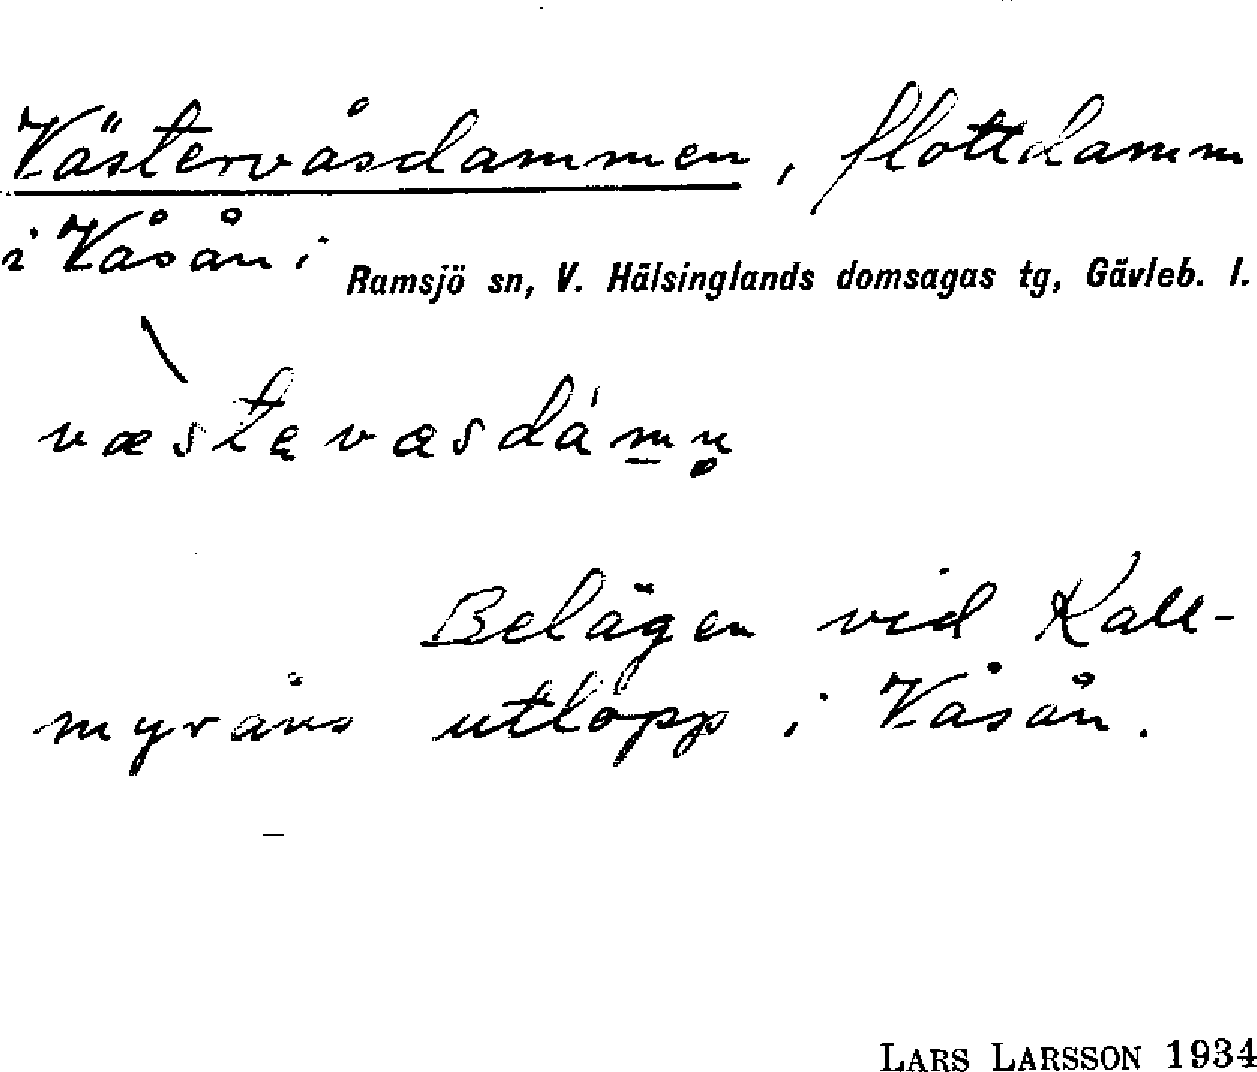 Västervåsdammen, flottdamm
i Våsån i Ramsjö sn, V. Hälsinglands domsagas tg, Gävleb. l.
Belägen vid Kall-
myråns utlopp i Våsån.
LARS LARSSON 1934